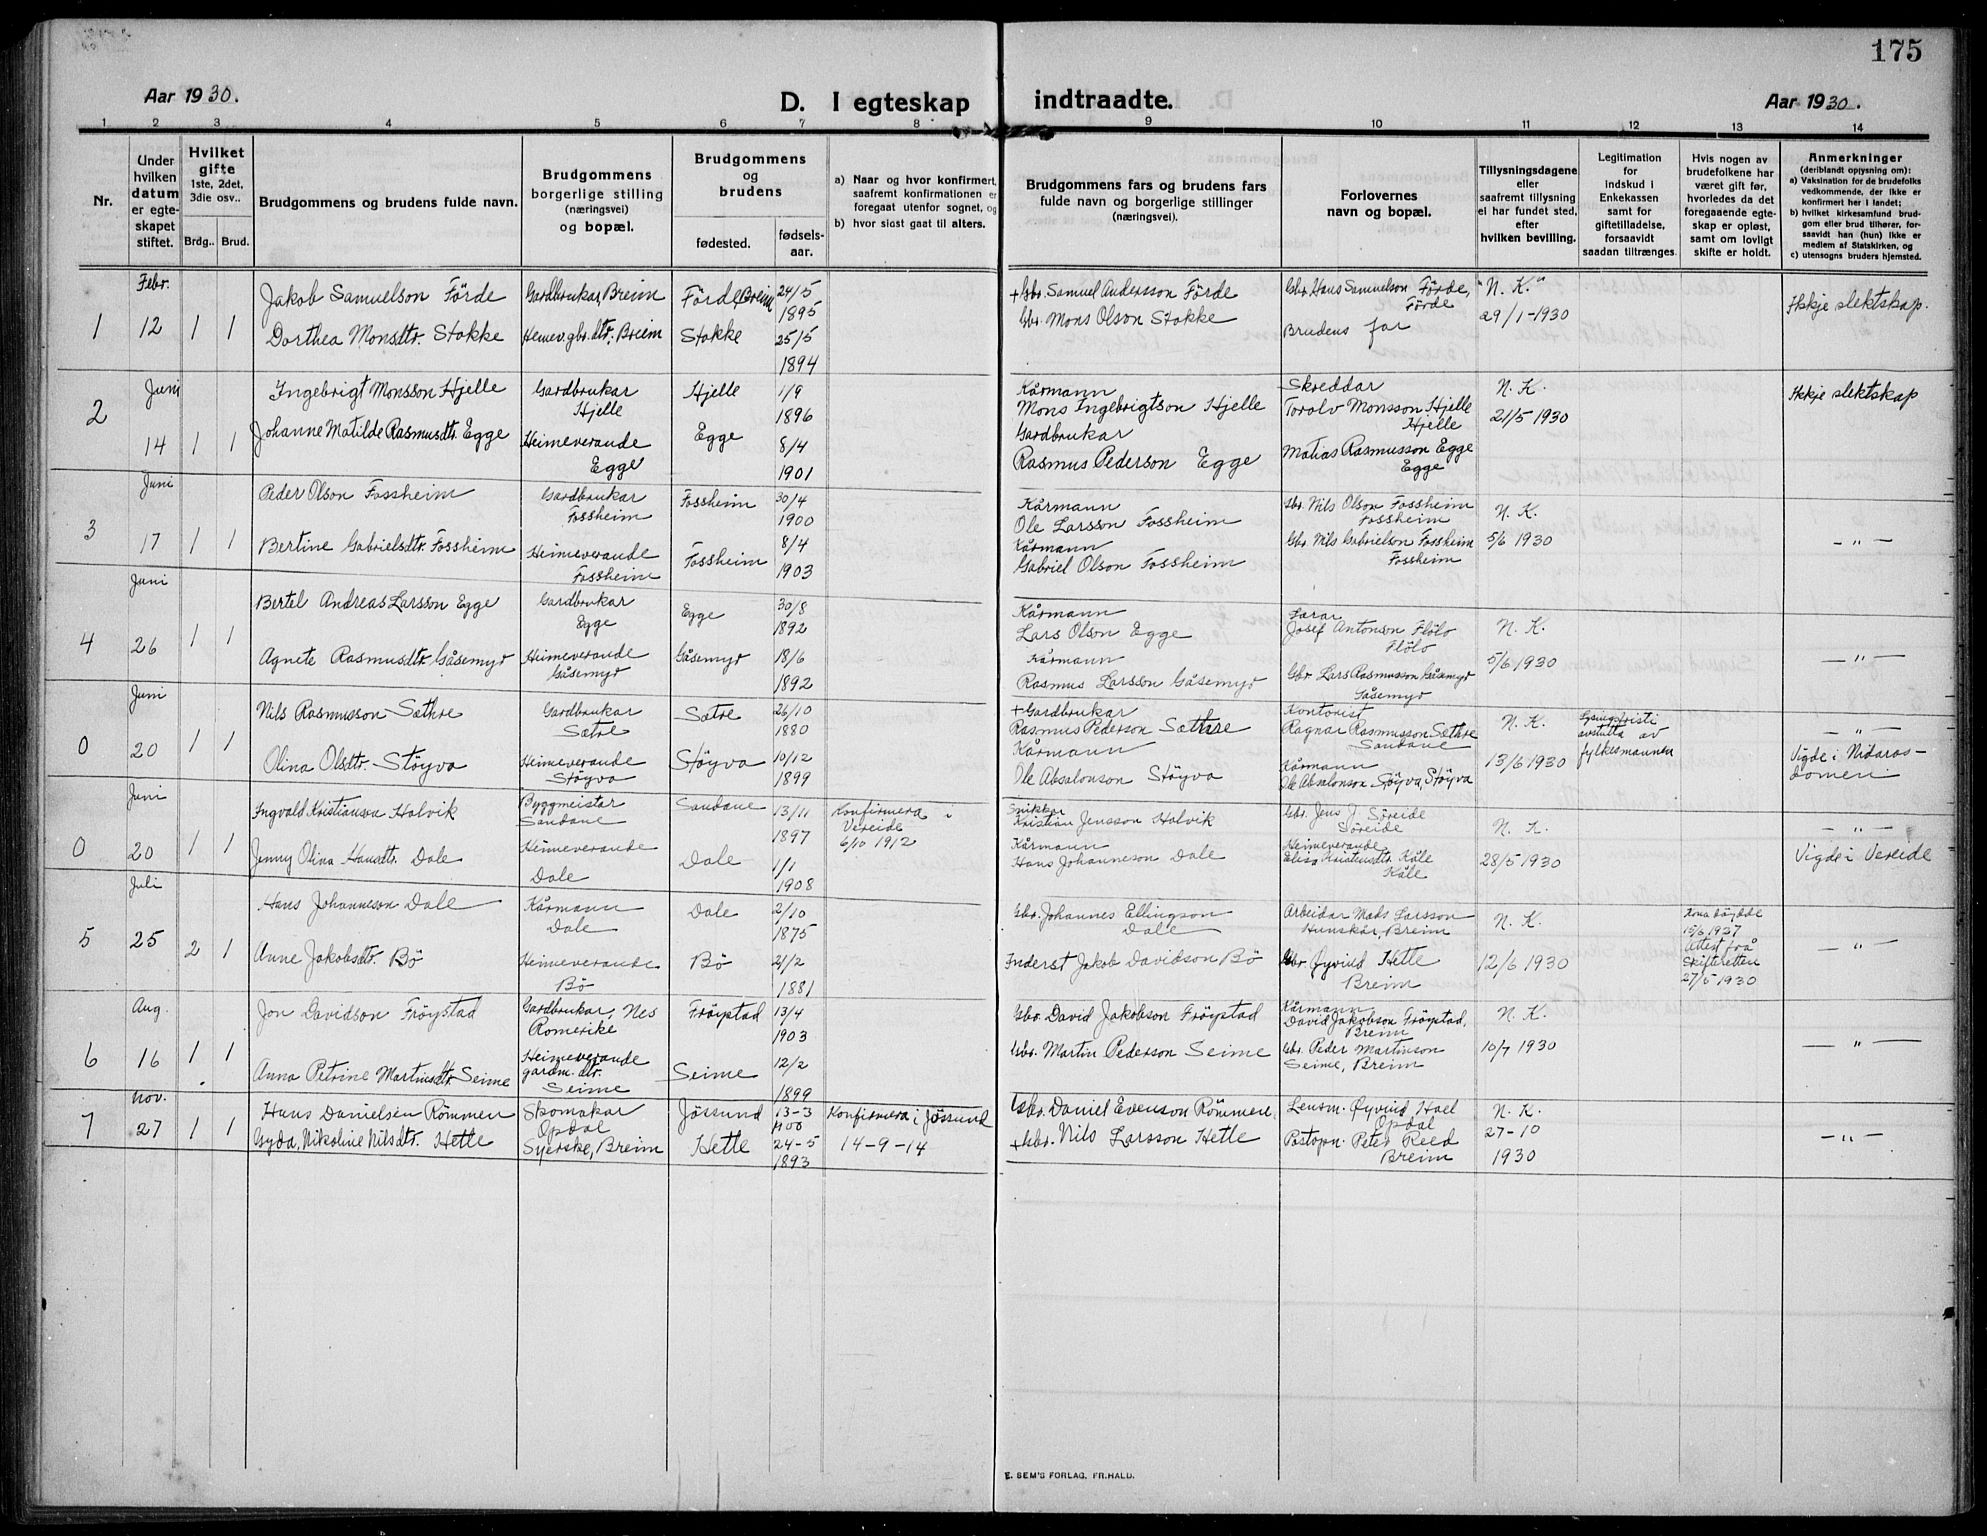 175
Aar 1930.
D. I egteskap indtraadte.
Aar 1930.
1 2 3 4 5 6 7 8 9 10 11 12 13 14
Nr.
Under hvilken datum er egteskapet stiftet.
Hvilket gifte 1ste, 2det, 3die osv..
Brdg.. Brud.
Brudgommens og brudens fulde navn.
Brudgommens borgerlige stilling (næringsvei) og bopæl.
Brudgommens og brudens
fødested.
fødselsaar.
a) Naar og hvor konfirmert, saafremt konfirmationen er foregaat utenfor sognet, og
b) hvor sidst gaat til alters.
Brudgommens fars og brudens fars fulde navn og borgerlige stillinger (næringsvei).
Forlovernes navn og bopæl.
Tillysningsdagene eller saafremt tillysning ei har fundet sted, efter hvilken bevilling.
Legitimation for indskud i Enkekassen samt for giftetilladelse, forsaavidt saadan tiltrænges.
Hvis nogen av brudefolkene har været gift før, hvorledes da det foregaaende egteskap er opløst, samt om lovligt skifte er holdt.
Anmerkninger (deriblandt opjysning om):
a) Vaksination for de brudefolks vedkommende, der ikke er konfirmert her i landet;
b) hvilket kirkesamfund brudgom eller brud tilhører, forsaavidt han (hun) ikke er medlem af Statskirken, og
c) utensogns bruders hjemsted.
1 Febr. 12 1 1
Jakob Samuelson Förde Gardbrukar, Breim Förde, Breim 24/5 1895
Dorthea Monsdtr. Stokke Heimev. gbr. dtr. Breim Stokke 25/5 1894
+ Gbr. Samuel Andersson Förde
Gbr. Mons Olson Stokke
Gbr. Hans Samuelson Förde, Förde
Brudens far
"N. K." 29/1-1930
Ikkje slektskap.
2 Juni 14 1 1
Ingebrigt Monsson Hjelle Gardbrukar Hjelle Hjelle 1/9 1896
Johanne Matilde Rasmusdtr. Egge Heimeverande Egge Egge 8/4 1901
Kårmann Mons Ingebrigtson Hjelle
Gardbrukar Rasmus Pederson Egge
Skreddar Torolv Monsson Hjelle Hjelle
Matias Rasmusson Egge Egge
N. K. 21/5 1930
Ikkje slektskap
3 Juni 17 1 1
Peder Olson Fossheim Gardbrukar Fossheim Fossheim 30/4 1900
Bertine Gabrielsdtr. Fossheim Heimeverande Fossheim Fossheim 8/4 1903
Kårmann Ole Larsson Fossheim
Kårmann Gabriel Olson Fossheim
Gbr. Nils Olson Fossheim Fossheim
Gbr. Nils Gabrielson Fossheim Fossheim
N. K. 5/6 1930
- " -
4 Juni 26 1 1
Bertel Andreas Larsson Egge Gardbrukar Egge Egge 30/8 1892
Agnete Rasmusdtr. Gåsemyr Heimeverande Gåsemyr Gåsemyr 18/6 1892
Kårmann Lars Olson Egge
Kårmann Rasmus Larsson Gåsemyr
Lærar Josef Antonson Flölo Flölo
Gbr. Lars Rasmusson Gåsemyr Gåsemyr
N. K. 5/6 1930
- " -
0 Juni 20 1 1
Nils Rasmusson Sæthre Gardbrukar Sætre Sætre 26/10 1880
Olina Olsdtr. Støyva Heimeverande Støyva Støyva 10/12 1899
+ Gardbrukar Rasmus Pederson Sæthre
Kårmann Ole Absalonson Støyva
Kontorist Ragnar Rasmusson Sæthre Sandane
Kårmann Ole Absalonson Støyva, Støyva
N. K. 13/6 1930
Lysingsfristi avstutta av fylkesmannen
- " -
Vigde i Nidarosdomen
0 Juni 20 1 1
Ingvald Kristianson Holvik Byggmeister Sandane Sandane 13/11 1897
Konfirmera i Vereide 6/10 1912
Jenny Olina Hansdtr. Dale Heimeverande Dale Dale 1/1 1908
Snikkar Kristian Jensson Holvik
Kårmann Hans Johanneson Dale
Gbr. Jens J. Söreide Söreide
Heimeverande Elisa Kristiansdtr. Kåle Kåle
N. K. 28/5 1930
- " -
Vigde i Vereide
5 Juli 25 2 1
Hans Johanneson Dale Kårmann Dale Dale 2/10 1875
Anne Jakobsdtr. Bö Heimeverande Bö Bö 2/2 1881
Gbr. Johannes Ellingson Dale
Inderst Jakob Davidson Bö
Arbeidar Mads Larsson Hunskår, Breim
Gbr. Øyvind Hette Breim
N. K. 12/6 1930
Kona döydde 15/6 1927 Attest frå Skifteretten 27/5 1930
- " -
6 Aug. 16 1 1
Jon Davidson Fröystad Gardbrukar, Nes Romerike Fröystad 13/4 1903
Anna Petrine Martinsdtr. Seime Heimeverande gardm. dtr. Seime Seime 12/2 1899
Gbr. David Jakobson Fröystad
Gbr. Martin Pederson Seime
Kårmann David Jakobson Fröystad, Breim
Gbr. Peder Martinson Seime, Breim
N. K. 10/7 1930
- " -
7 Nov. 27 1 1
Hans Danielsen Römmen Skomakar Opdal Jössund 13-3 1900
Konfirmera i Jössund 14-9-14
Gyda, Nikoline Nilsdtr. Hette Syerske, Breim Hette 24-5 1893
Gbr. Daniel Evenson Römmen
+ Gbr. Nils Larsson Hette
Lensm. Øyvind Hoel Opdal
Postopn. Peter Reed Breim
N. K. 27-10 1930
- " -
E. SEM'S FORLAG, FR.HALD.